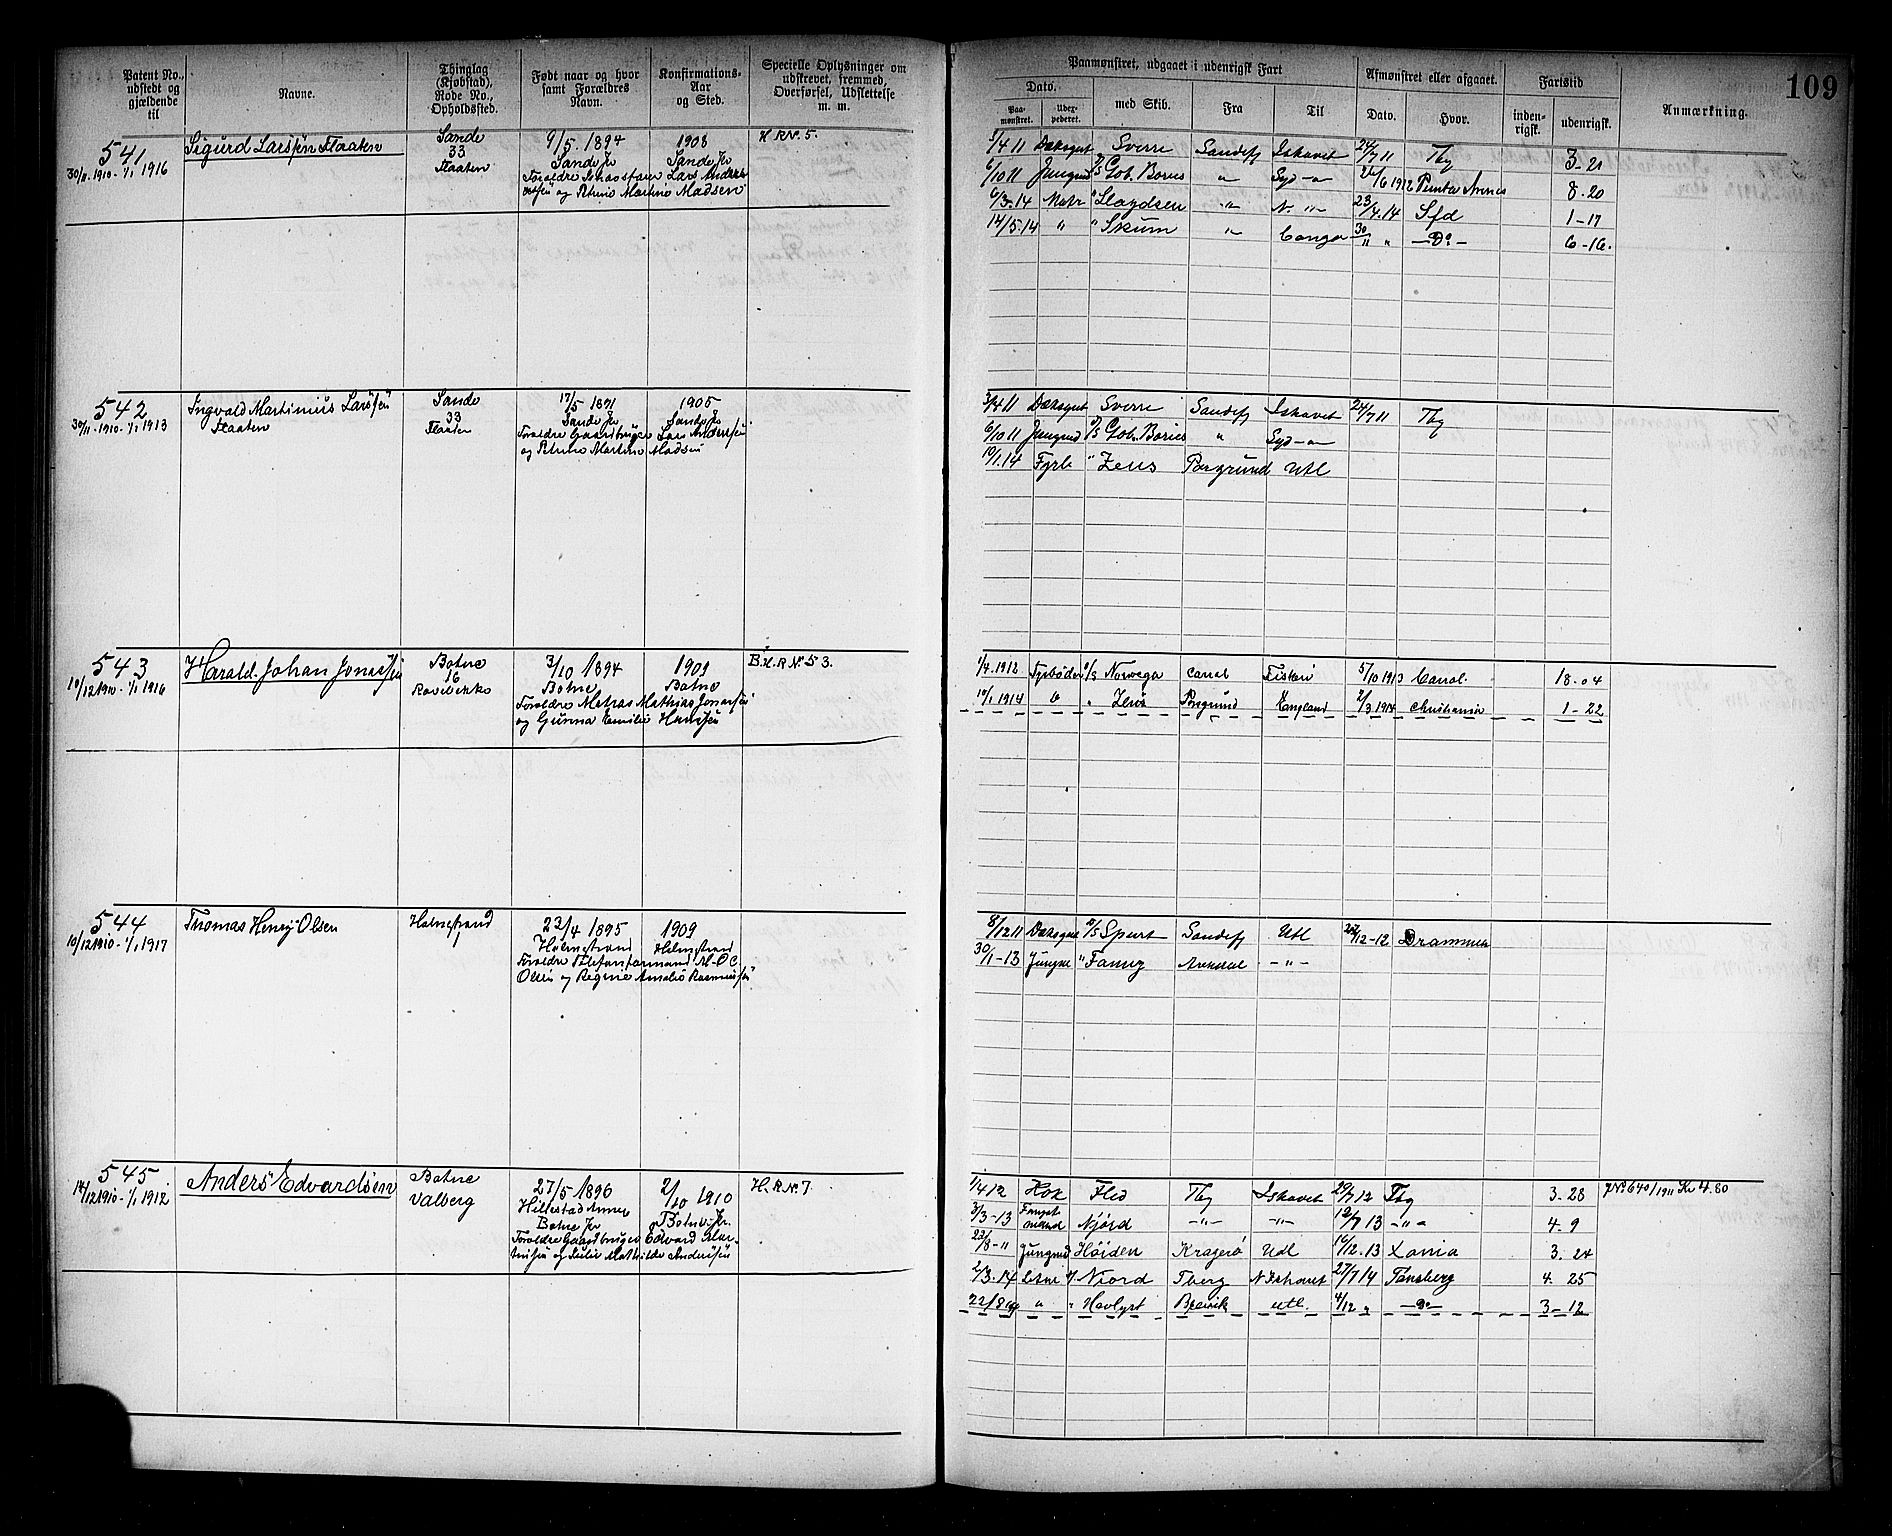 109
Patent No., udstedt og gjældende til
Navne.
Thinglag (Kjøbstad), Rode No., Opholdssted.
Født naar og hvor samt Forældres Navn.
Konfirmations- Aar og Sted.
Specielle Oplysninger om udskrevet, fremmed, Overførsel, Udslettelse m. m.
Paamønstret, udgaaet i udenrigsk Fart
Dato.
Paa- mønstret.
Uder- pederet.
med Skib.
Fra
Til
Afmønstret eller afgaaet.
Dato.
Hvor.
Fartstid
inden- rigsk.
udenrigsk.
Anmærkning.
541
30/11-1910-1/1 1916
Sigurd Larssen Flaaten
Sande
33
Flaaten
9/5. 1894
Sande Jr
1908
Sande Jr
Martine Madsen
H.R.Nº. 5.
1/4 11 Dæksgut Sverre Sandefj Ishavet 24/7 11 Tbg 3-21
6/10 11 Jungmd Gob. Bories " Syd-" 1912 8-20
6/3-14 Matr " N. " 23/4.14 Sfd 1-17
14/5.14 " " Skum " Congo 30/11 " -Dº- 6-16.
542
30/11-1910-1/1 1913
Ingvald Martinius Larssen
Flaaten
Sande
33
Flaaten
17/5 1891
Sande Jr
1905
Sande Jr
Forældre Gaardbruger Lars Andersen
og Petrine Martine Madsen
3/4 11 Dæksgut Sverre Sandefj Ishavet 24/7 11 Tbg
6/10 11 Jungmd Gob. Bories " Syd-"
10/1.14 Fyrb " Zeus Porsgrund Utl
543
10/12 1910-1/1 1916
Harald Johan Jonassen
Botne
16
3/10 1894
Botne
1909
Botne
Forældre Matros Mathias Jonassen
og Gunna Emilie Hansen
B.H.R.Nº. 53.
1/4.1912 Fyrbøder Norwega 5/10 1913 18-04
10/1 1914 " Zeus Porsgrund England 2/3 1914 Christiania 1-22
544
10/12 1910-1/1 1917
Thomas Henry Olsen
Holmestrand
23/4 1895
Holmestrand
1909
Holmestrand
Olsen og Regine Amalie Rasmussen
8/12 11 Dæksgut Spurt Sandefj Utl 12-12 Drammen
30/1-13 Jungm " Fanny Arendal -"-
545
14/12 1910-1/1 1912
Anders Edvardsen
Botne
Valberg
27/5 1896
Hillestad Annex
Botne Jr
2/10 1910
Botne Jr.
Forældre Gaardbruger Edvard Mar-
tinsen og Julie Mathilde Andersen
H.R.Nº 7.
1/4 12 Kok Flid Tbg Ishavet 29/7 12 Tbg 3-28 J.Nº 640/1911 Kr 4.80
3/3-13 Njord -"- -"- 12/7 13 -"- 4-9
22/8-" Jungmd Høiden Kragerø Udl 16/12.13 Xania 3-24
2/3.14 Njord Tberg N. Ishavet 27/7 14 Tønsberg 4-25
22/8 14 " " Havlyst Brevik utl. 4/12 " -Dº- 3-12